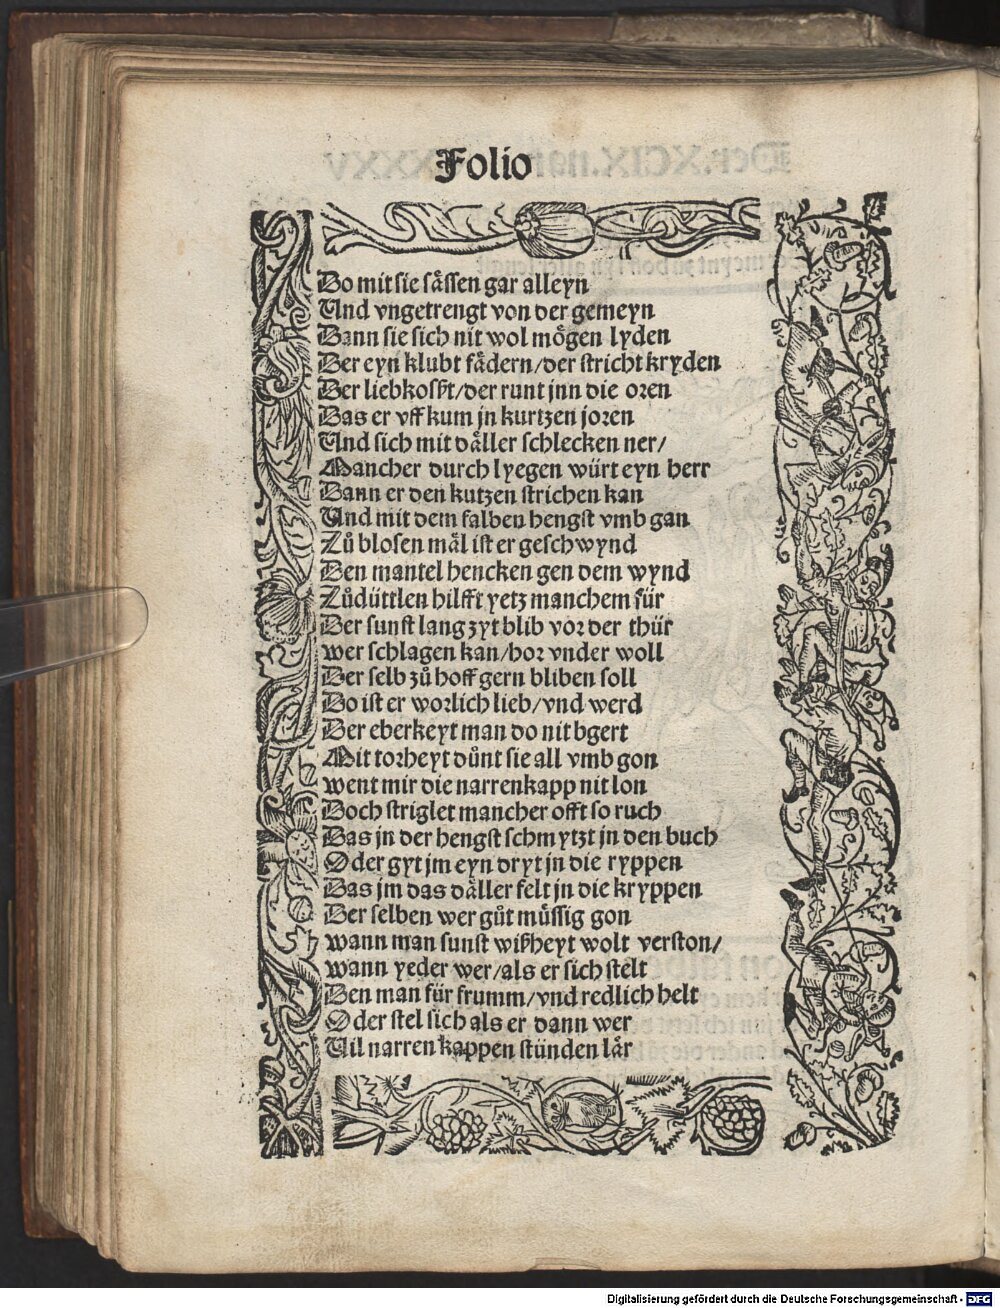 Folio
Do mit sie sässen gar alleyn
Und vngetrengt von der gemeyn
Dann sie sich nit wol mögen lyden
Der eyn klubt fädern/der stricht kryden
Der liebkoßt/der runt jnn die oren
Das er vff kum jn kurtzen joren
Und sich mit däller schlecken ner/
Mancher durch lyegen würt eyn herr
Dann er den kutzen strichen kan
Und mit dem falben hengst vmb gan
Zů blosen mäl ist er geschwynd
Den mantel hencken gen dem wynd
Zůdüttlen hilfft yetz manchem für
Der sunst lang zyt blib vor der thür
wer schlagen kan/hor vnder woll
Der selb zů hoff gern bliben soll
Do ist er worlich lieb/vnd werd
Der eberkeyt man do nit bgert
Mit torheyt důnt sie all vmb gon
went mir die narrenkapp nit lon
Doch striglet mancher offt so ruch
Das jn der hengst schmytzt jn den buch
Oder gyt jm eyn dryt jn die ryppen
Das jm das däller felt jn die kryppen
Der selben wer gůt müssig gon
wann man sunst wißheyt wolt verston/
wann yeder wer/als er sich stelt
Den man für frumm/vnd redlich helt
Oder stel sich als er dann wer
Uil narren kappen stünden lär
Digitalisierung gefördert durch die Deutsche Forschungsgemeinschaft - DFG